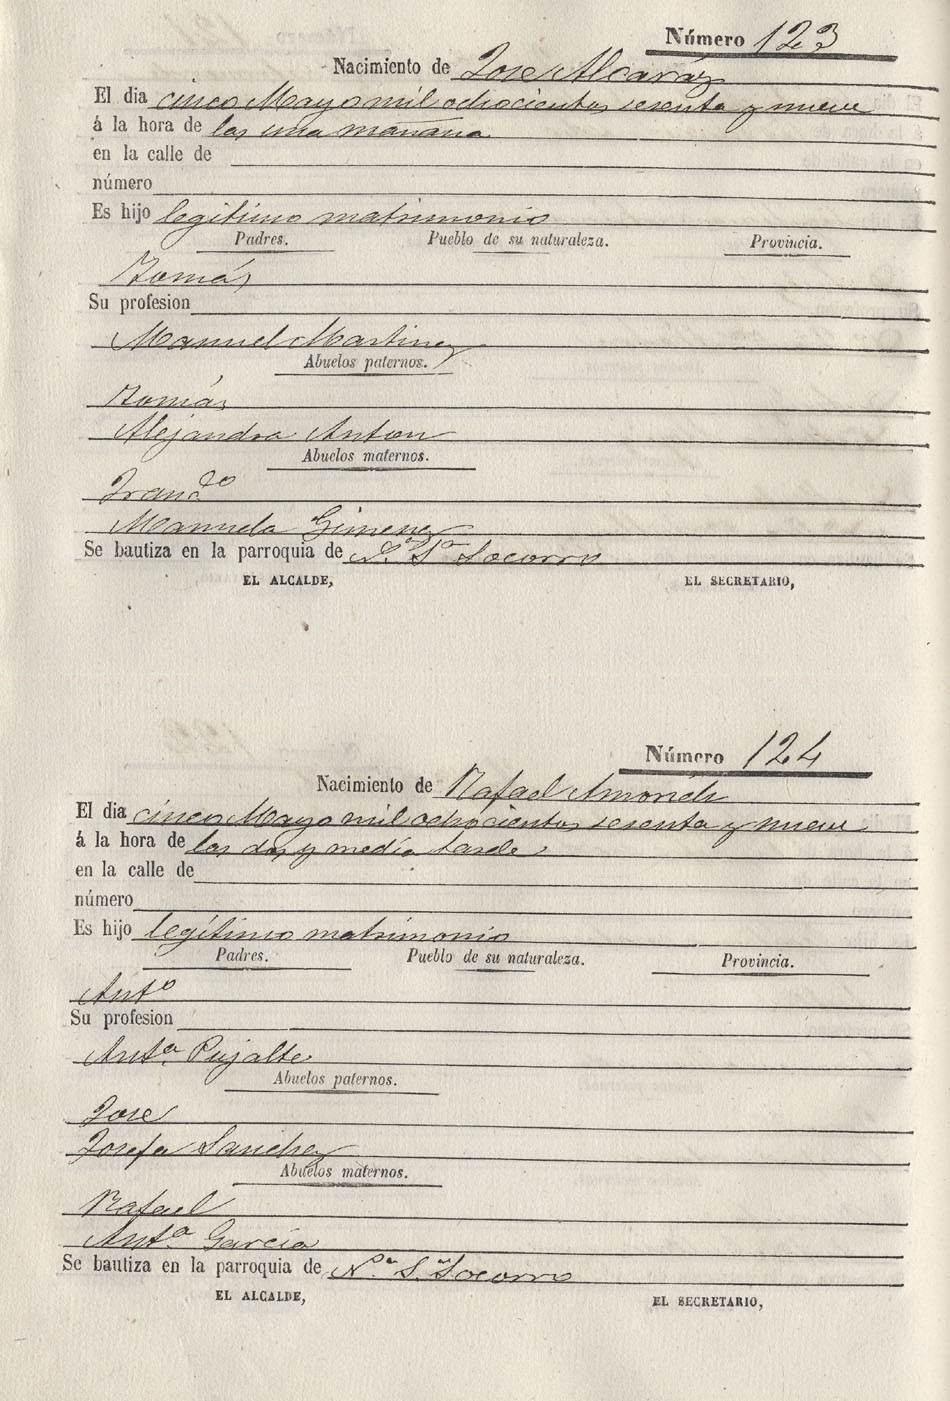 Número 123
Nacimiento de Jose Alcaráz
El dia cinco Mayo mil ochocientos sesenta y nueve
á la hora de las una mañana
en la calle de
número
Es hijo legitimo matrimonio
Padres. Pueblo de su naturaleza. Provincia.
Tomás
Su profesion
Manuel Martinez
Abuelos paternos.
Tomás
Alejandra Anton
Abuelos maternos.
Franco
Manuela Gimenez
Se bautiza en la parroquia de N.ª S.ª Socorro
EL ALCALDE, EL SECRETARIO,
Número 124
Nacimiento de Rafael Amorós
El dia cinco Mayo mil ochocientos sesenta y nueve
á la hora de las dos y media tarde
en la calle de
número
Es hijo legítimo matrimonio
Padres. Pueblo de su naturaleza. Provincia.
Anto
Su profesion
Ant.ª Pujalte
Abuelos paternos.
Jose
Josefa Sanchez
Abuelos maternos.
Rafael
Ant.ª García
Se bautiza en la parroquia de N.ª S.ª Socorro
EL ALCALDE, EL SECRETARIO,